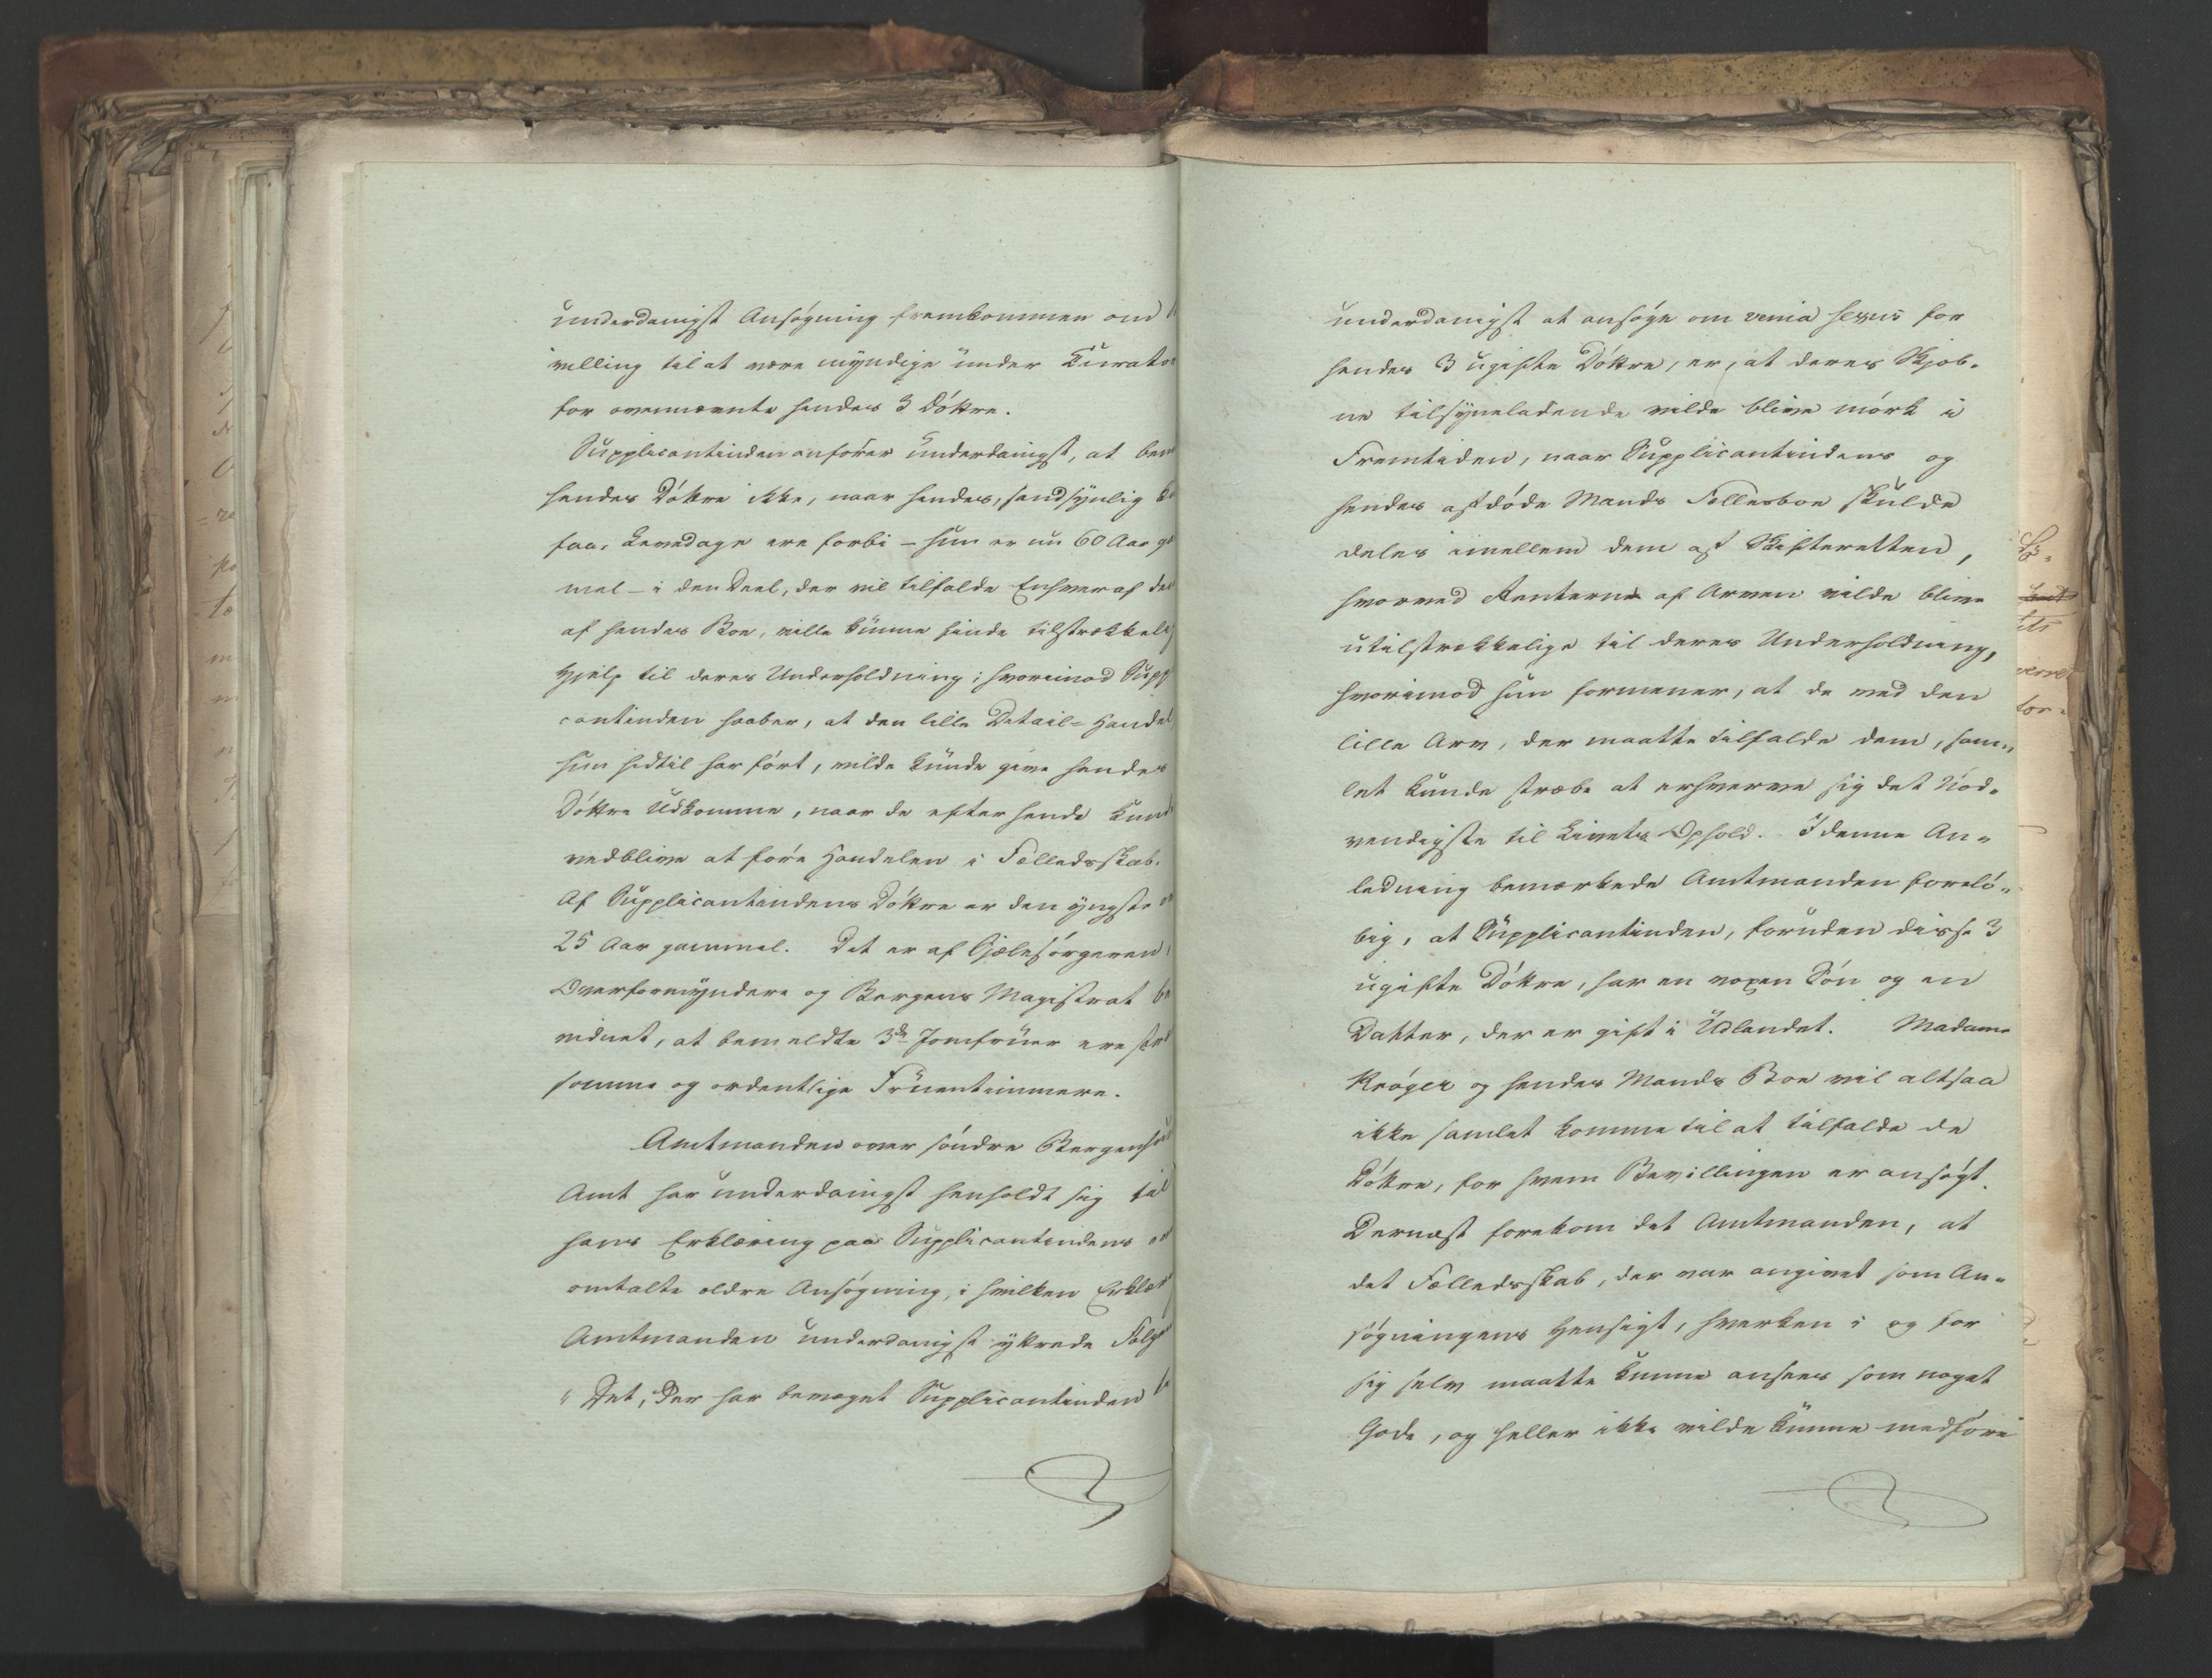 underdanigst Ansøgning fremkommen om
villing til at være myndige under Curator
for ovennævnte hendes 3 Døttre.
Supplicantinden anfører underdanigst, at
hendes Døttre ikke, naar hendes, sandsynlig
faa, Levedage ere forbi – hun er nu 60 Aar
mel – i den Deel, der vil tilfalde Enhver af
af hendes Boe, ville kunne finde tilstrækkelig
Hjelp til deres Underholdning; hvorimod Suppl
cantinden haaber, at den lille Detail-Handel
hun hidtil har ført, vilde kunde give hendes
Døttre Udkomme, naar de efter hende kunde
vedblive at føre Handelen i Fælledsskab.
Af Supplicantindens Døttre er den yngste
25 Aar gammel. Det er af Sjælesørgeren,
Overformyndere og Bergens Magistrat be
vidnet, at bemeldte 3de Jomfruer ere
somme og ordentlige Fruentimmere.
Amtmanden over søndre Bergenhuus
Amt har underdanigst henholdt sig til
hans Erklæring paa Supplicantindens
omtalte ældre Ansøgning, i hvilken Erklæring
Amtmanden underdanigst yttrede Følgende
"Det, der har bevæget Supplicantinden
underdanigst at ansøge om venia sexus for
hendes 3 ugifte Døttre, er, at deres Skjæb-
ne tilsyneladende vilde blive mørk i
Fremtiden, naar Supplicantindens og
hendes afdøde Mands Fællesboe skulde
deles imellem dem af Skifteretten,
hvorved Renterne af Arven vilde blive
utilstrækkelige til deres Underholdning,
hvorimod hun formener, at de med den
lille Arv, der maatte tilfalde dem, sam-
let kunde stræbe at erhverve sig det Nød-
vendigste til Livets Ophold. I denne An-
ledning bemærkede Amtmanden forelø-
big, at Supplicantinden, foruden disse 3
ugifte Døttre, har en voxen Søn og en
Datter, der er gift i Udlandet. Madame
Krøger og hendes Mands Boe vil altsaa
ikke samlet komme til at tilfalde de
Døttre, for hvem Bevillingen er ansøgt.
Dernæst forekom det Amtmanden, at
det Fælledsskab, der var angivet som An-
søgningens Hensigt, hverken i og for
sig selv maatte kunne ansees som noget
Gode, og heller ikke vilde kunne medføre